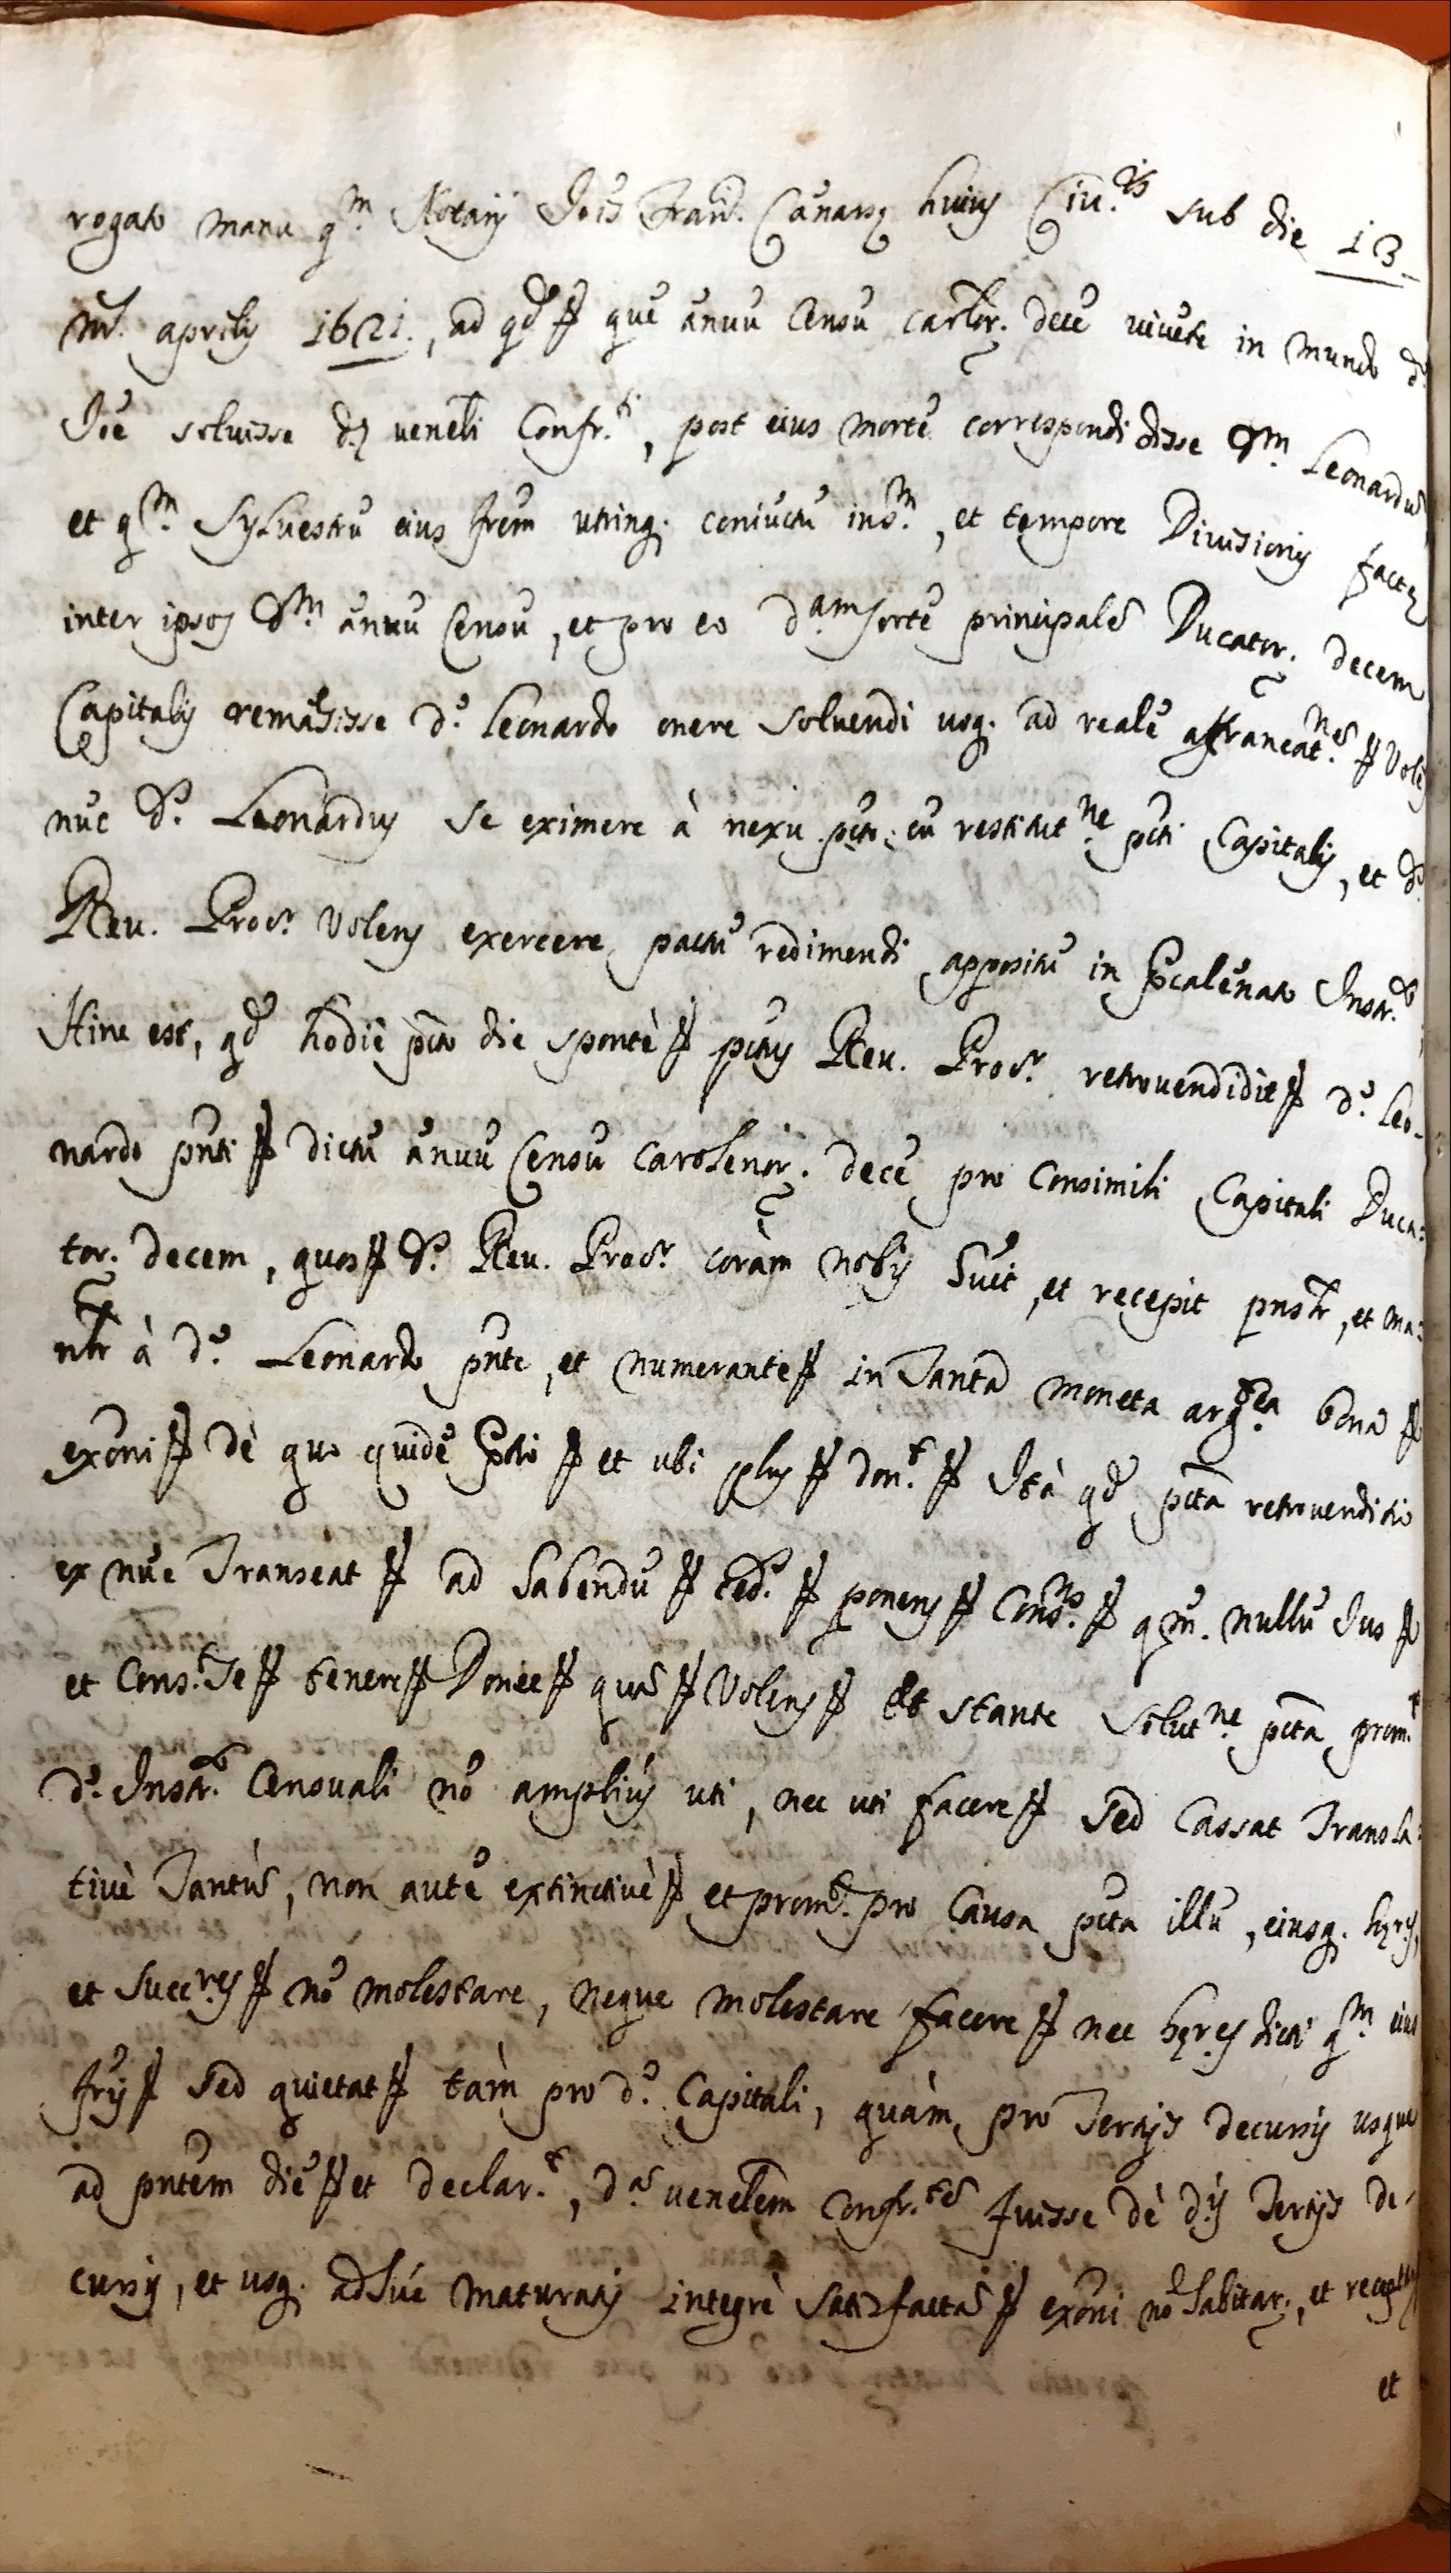 rogato manu qm. Notarij Jois Fran. Canarsę huius Ciu.tis sub die 13
mr. aprilis 1621., ad qd ꝑ que ãnuũ Censũ carlor. decẽ uiuẽte in mundo d.
Joẽ soluisse dę venebli Confr.ti, post eius mortẽ correspondidisse qm. Leonardũ
et qm. Syluestrũ eius frem utrinq. coniuctũ insm., et tempore Diuisionis factę
inter ipsos dm. ãnuũ Censũ, et pro eo dam sortẽ principalẽ Ducator. decem
Capitalis remãsisse d.º Leonardo onere soluendi usq. ad realẽ affrancat.nẽ ꝑ Volẽs
nũc d.s Leonardus se eximere à nexu pcto. cũ restitut.ne pcti Capitalis, et d.s
Reu. Procr. volens exercere pactũ redimendi appositũ in p̃calẽnato Instr.to,
Hinc est, qd hodiè pcto die spontè ꝑ pctus Reu. Procr. retrouendidit ꝑ d.º Leo-
nardo pñti ꝑ dictũ ãnuũ Censũ carolenor. decẽ pro consimili Capitali Duca:
tor. decem, quos ꝑ d.s Reu. Procr. coràm nobis hũit, et recepit pnslr, et ma:
nlr à d.º Leonardo pñte, et numerante ꝑ in Tantà moneta arg.tea bona ꝑ
exõni ꝑ dè quo quidẽ p̃tio ꝑ et ubi plus ꝑ don.t ꝑ Ità qd pcta retrouenditio
ex nũc Transeat ꝑ ad habendũ ꝑ ced.s ꝑ ponens ꝑ Cons.ns ꝑ qm. nullũ Jus ꝑ
et Cons.t se ꝑ tenere ꝑ Donec ꝑ quã ꝑ Volens ꝑ Et stante solut.ne pcta, prom.t
d.º Instr.to Censuali nõ ampliùs uti, nec uti facere ꝑ sed Cassat Transla:
tiuè Tantũ, non autẽ extinctiuè ꝑ et prom.t pro causa pcta illũ, eiusq. hęr.s,
et succ.res ꝑ nõ molestare, neque molestare facere ꝑ nec hęr.es dicti qm. eius
fris ꝑ sed quietat ꝑ tàm pro d.º Capitali, quàm pro Tertijs decursis usque
ad pntem diẽ ꝑ et declar.t, d.ã venebLem Confr.tẽ fuisse dè d.is Tertijs de-
cursis, et usq. adhuc maturatis integrè satisfactã ꝑ exõni nõ habitar., et receptis
et